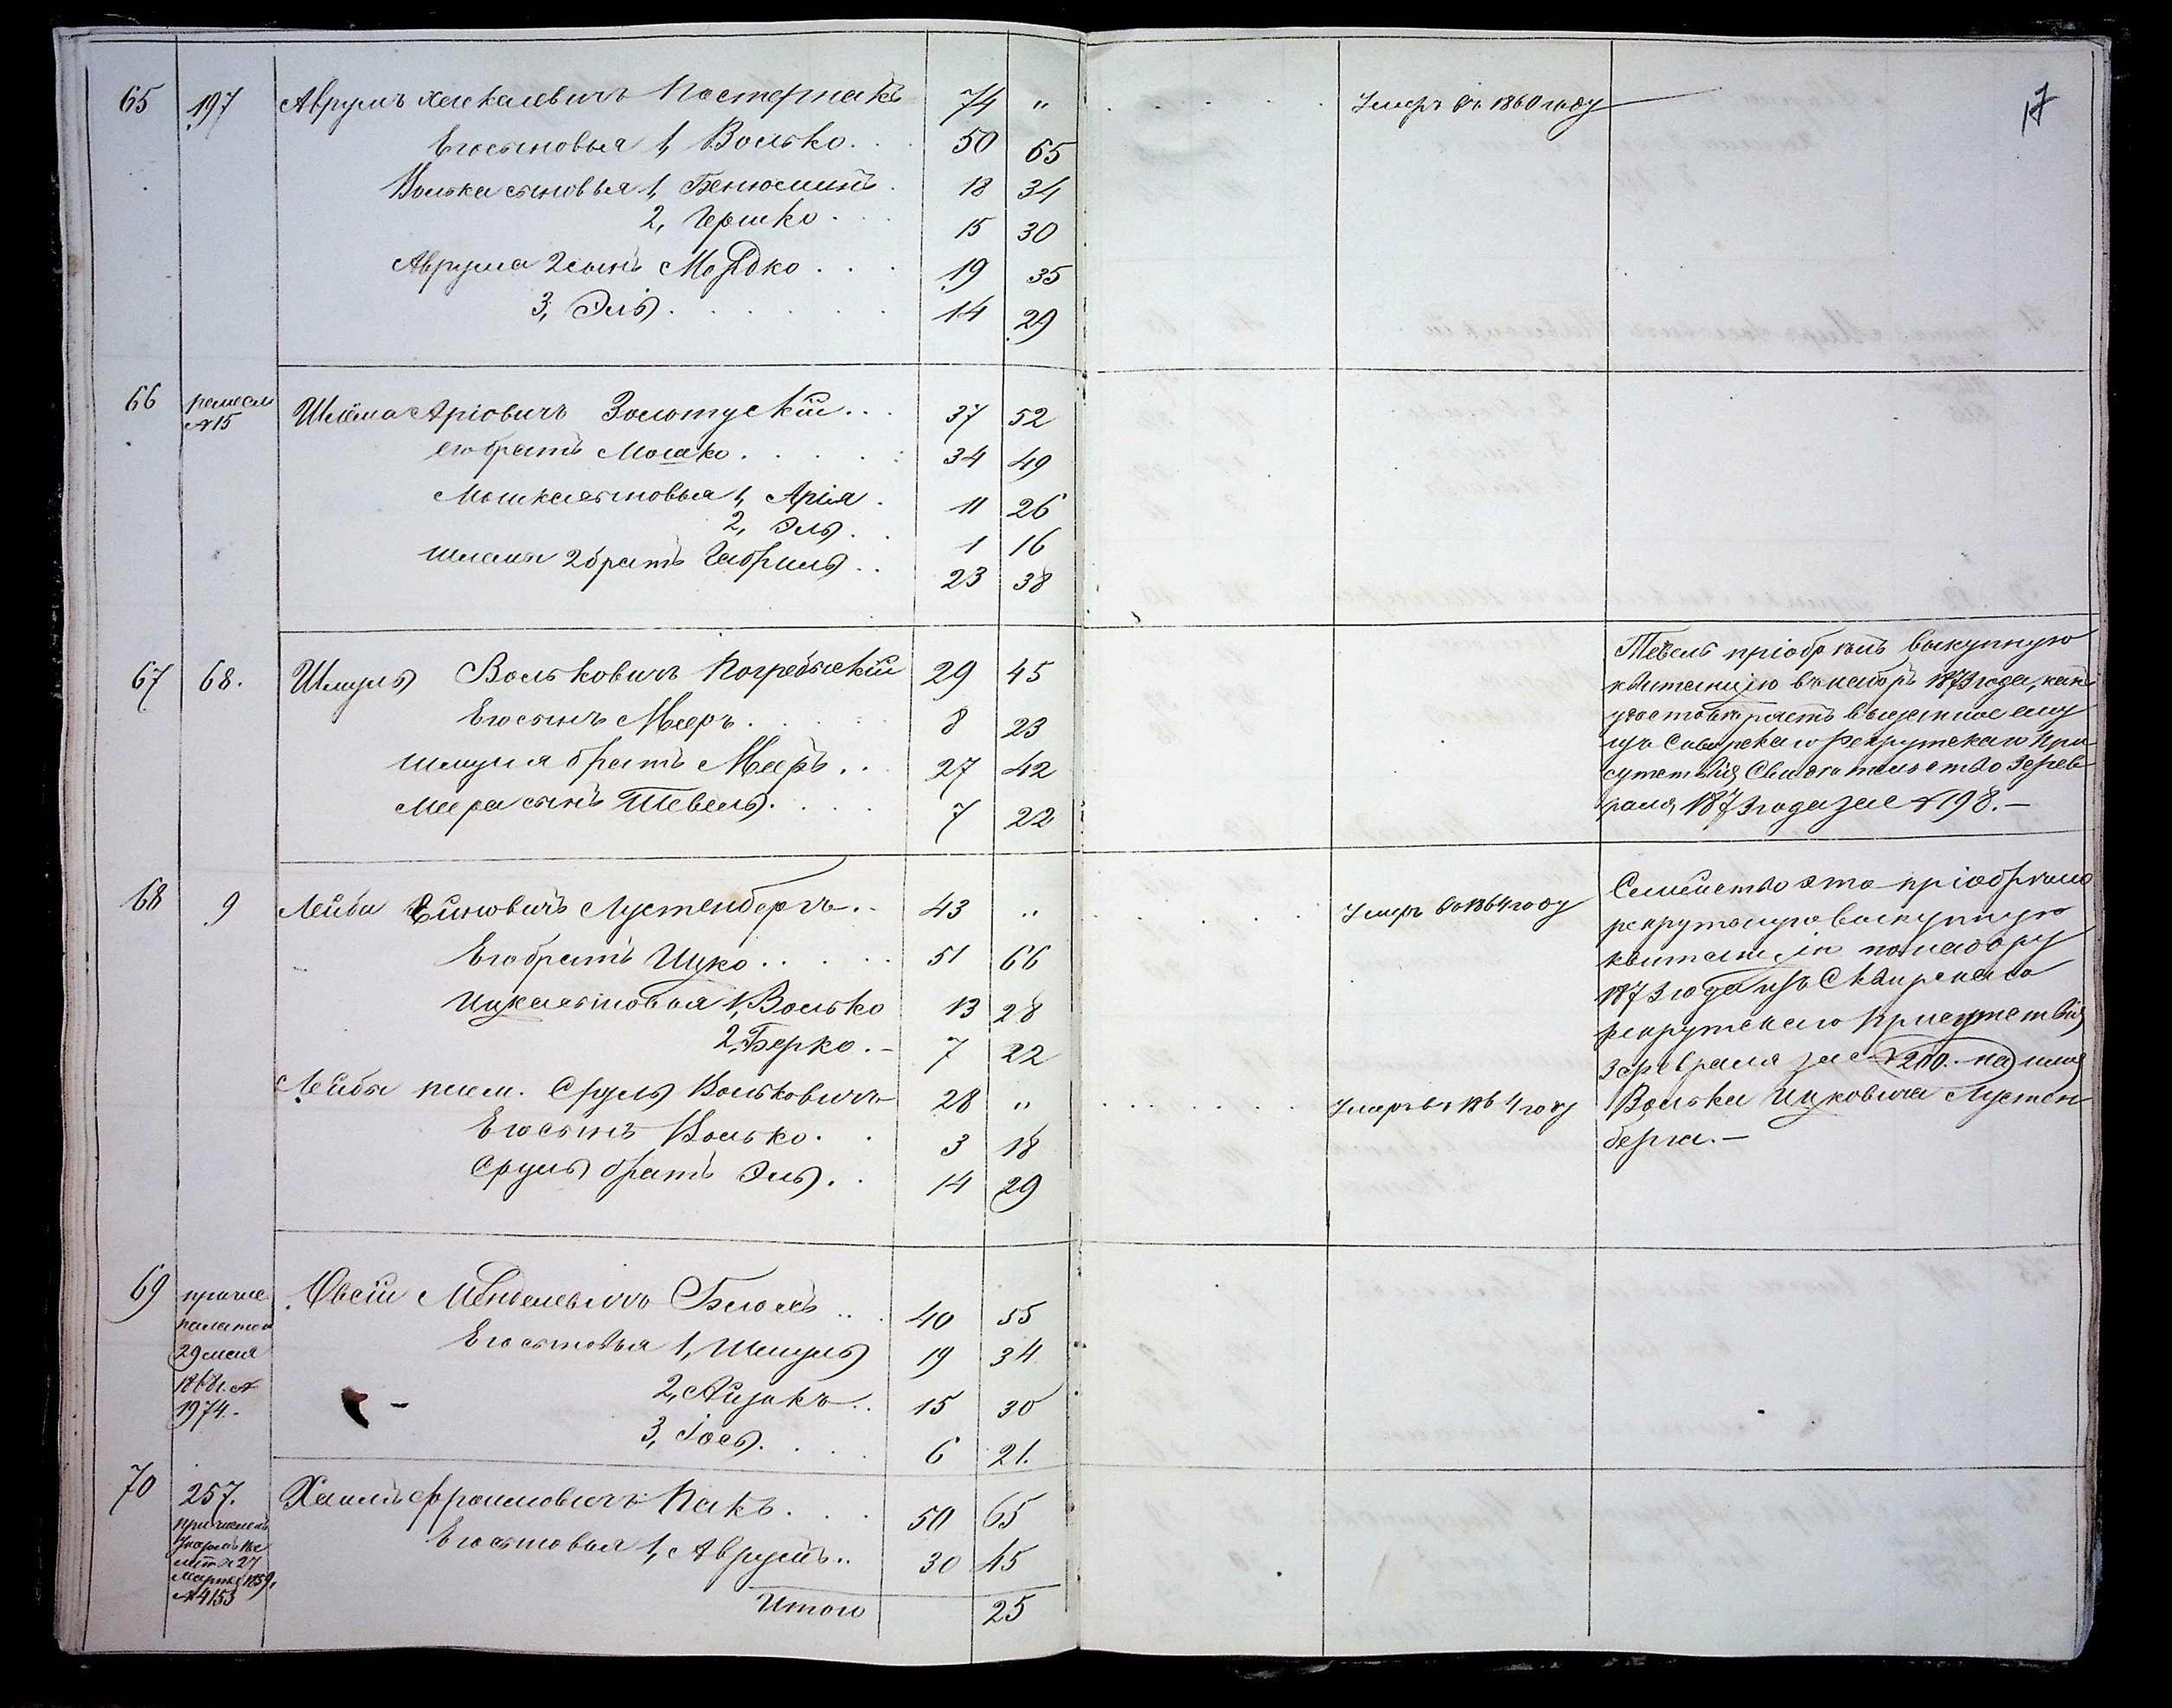 17
65 197 Аврумъ Хаскалевичъ Пастернакъ 74 " Умеръ въ 1860 году
Его сыновья 1, Волько 50 65
Волька сыновья 1, Бенюминъ 18 34
2, Гершко 15 30
Аврума 2 сынъ Мордко 19 35
3, Эль 14 29
66 ремесл №15 Шлёма Аріовичъ Золотускій 37 52
его братъ Мошко 34 49
Мошка сыновья 1, Арія 11 26
2, Эль 1 16
Шлемы 2 братъ Габриль 23 38
67 68. Шмуль Вольковичъ Погребыскій 29 45
Его сынъ Мееръ 8 23
Шмуля братъ Мееръ 27 42
Меера сынъ Тевель 7 22
Тевель пріобрѣлъ выкупную
квитанцію въ наборъ 1873 года, какъ
удостовѣряетъ выданное ему
изъ Сквирскаго Рекрутскаго При-
сутствія Свидѣтельство 3 Фев-
раля 1873 года за №198.—
68 9 Лейба Гиновичъ Лустенбергъ 43 " Умеръ въ 1864 году
Его братъ Ицко 51 66
Ицка сыновья 1, Волько 13 28
2, Берко 7 22
Лейбы плем. Сруль Вольковичъ 28 " Умеръ въ 1864 году
Его сынъ Волько 3 18
Сруля братъ Эль 14 29
Семейство это пріобрѣло
рекрутскую выкупную
квитанцію по набору
1873 года изъ Сквирскаго
рекрутскаго Присутствія
3 февраля за №200. на имя
Волька Ицковича Лустен-
берга.—
69 Овсій Менделевичъ Блюмъ 40 55
палатою
29 мая
1868 г. №
1974.
Его сыновья 1, Шмуль 19 34
2, Айзикъ 15 30
3, Іось 6 21.
70 257. Хаимъ Фроимовичъ Пакъ 50 65
Его сыновья 1, Аврумъ 30 45
27
Марта 1859,
№4153
Итого 25